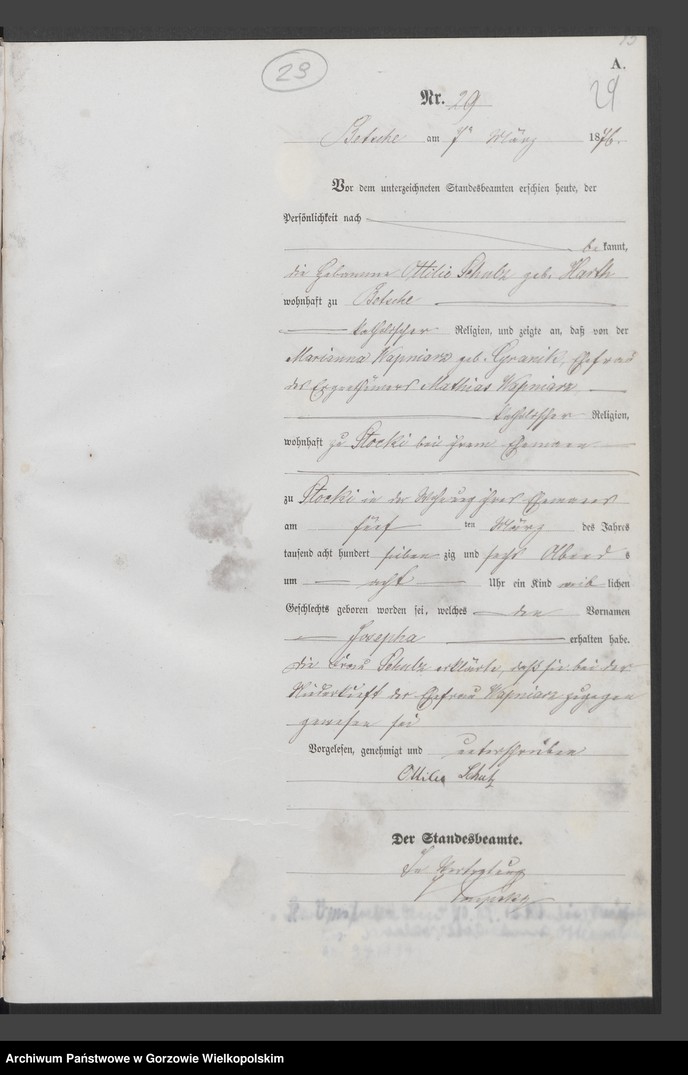 29
A.
29
Nr. 29
Betsche am 7ten März 1876.
Vor dem unterzeichneten Standesbeamten erschien heute, der
Persönlichkeit nach
be kannt,
die Hebamme Ottilie Schulz geb. Harth
wohnhaft zu Betsche
katholischer Religion, und zeigte an, daß von der
Marianna Wapniarz geb. Granik, Ehefrau
des Eigenthümers Mathias Wapniarz
katholischer Religion,
wohnhaft zu Stocki bei ihrem Ehemann
zu Stocki in der Wohnung ihres Ehemannes
am fünf ten März des Jahres
tausend acht hundert sieben zig und sechs Abend s
um acht Uhr ein Kind weib lichen
Geschlechts geboren worden sei, welches den Vornamen
Josepha erhalten habe.
Die Frau Schulz erklärte, daß sie bei der
Niederkunft der Ehefrau Wapniarz zugegen
gewesen sei
Vorgelesen, genehmigt und unterschrieben
Ottilie Schulz
Der Standesbeamte.
In Vertretung
Archiwum Państwowe w Gorzowie Wielkopolskim